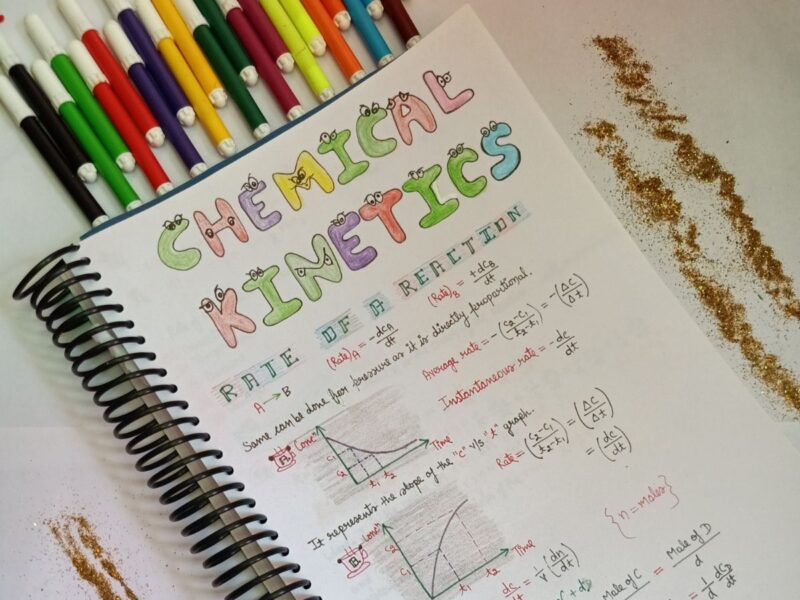 CHEMICAL
KINETICS
RATE OF A REACTION
A → B
(Rate)A = -dCA/dt
(Rate)B = +dCB/dt
Same can be done for pressure as it is directly proportional.
Average rate = -(C2-C1/t2-t1) = -(ΔC/Δt)
Instantaneous rate = -dc/dt
A
Concⁿ
C1
C2
t1
t2
Time
It represents the slope of the "c" v/s "t" graph.
Rate = (C2-C1/t2-t1) = (ΔC/Δt)
= (dc/dt)
B
Concⁿ
C2
C1
t1
t2
Time
{n = moles}
dc/dt = 1/V (dn/dt)
Mole of C = Mole of D/d